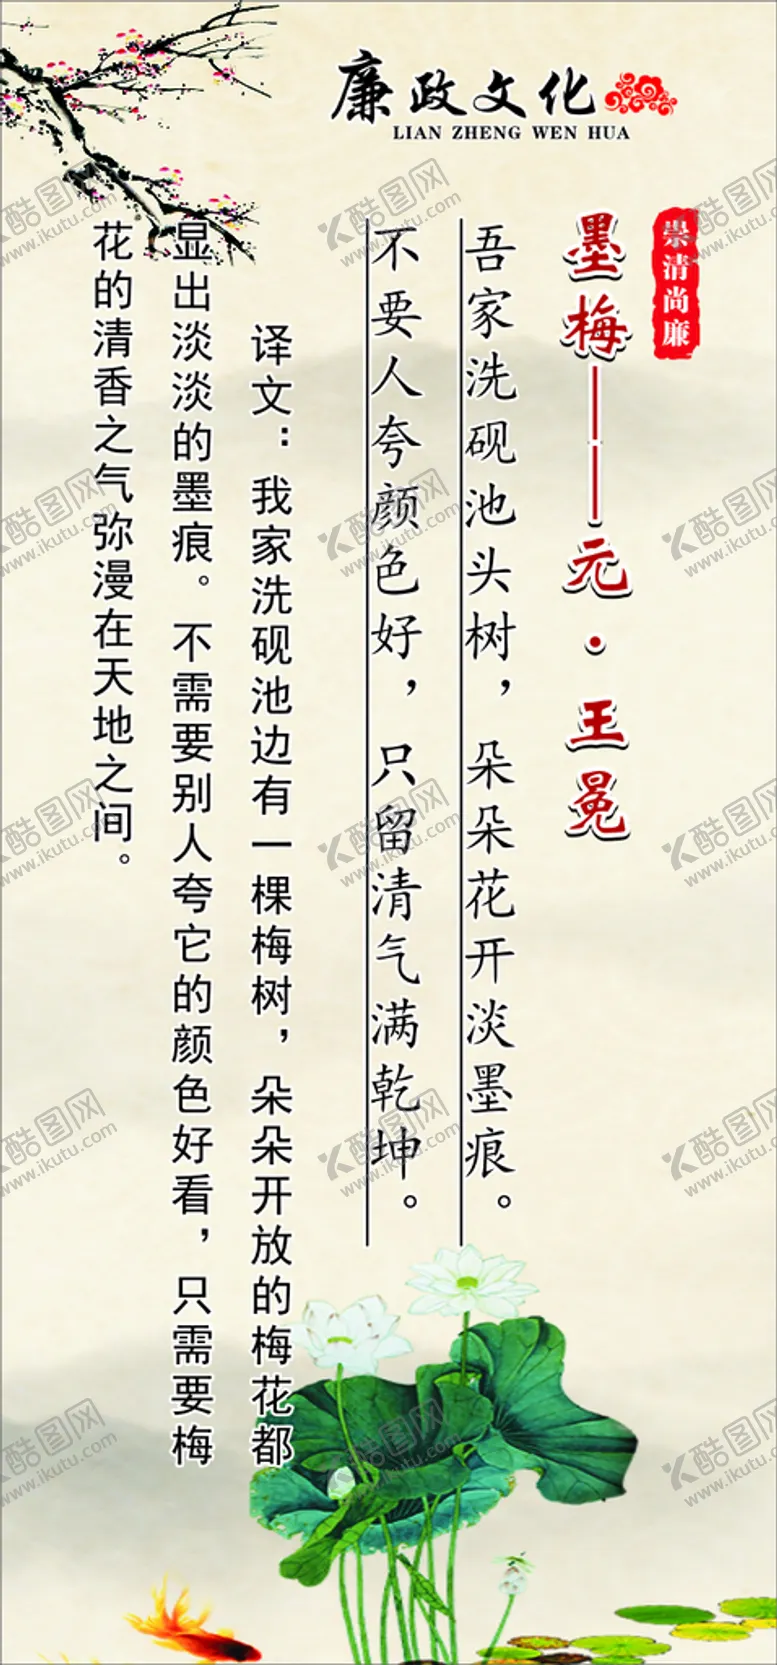 廉政文化
LIAN ZHENG WEN HUA
崇清尚廉
墨梅——元·王冕
吾家洗砚池头树，朵朵花开淡墨痕。
不要人夸颜色好，只留清气满乾坤。
译文：我家洗砚池边有一棵梅树，朵朵开放的梅花都
显出淡淡的墨痕。不需要别人夸它的颜色好看，只需要梅
花的清香之气弥漫在天地之间。
酷图网
www.ikutu.com